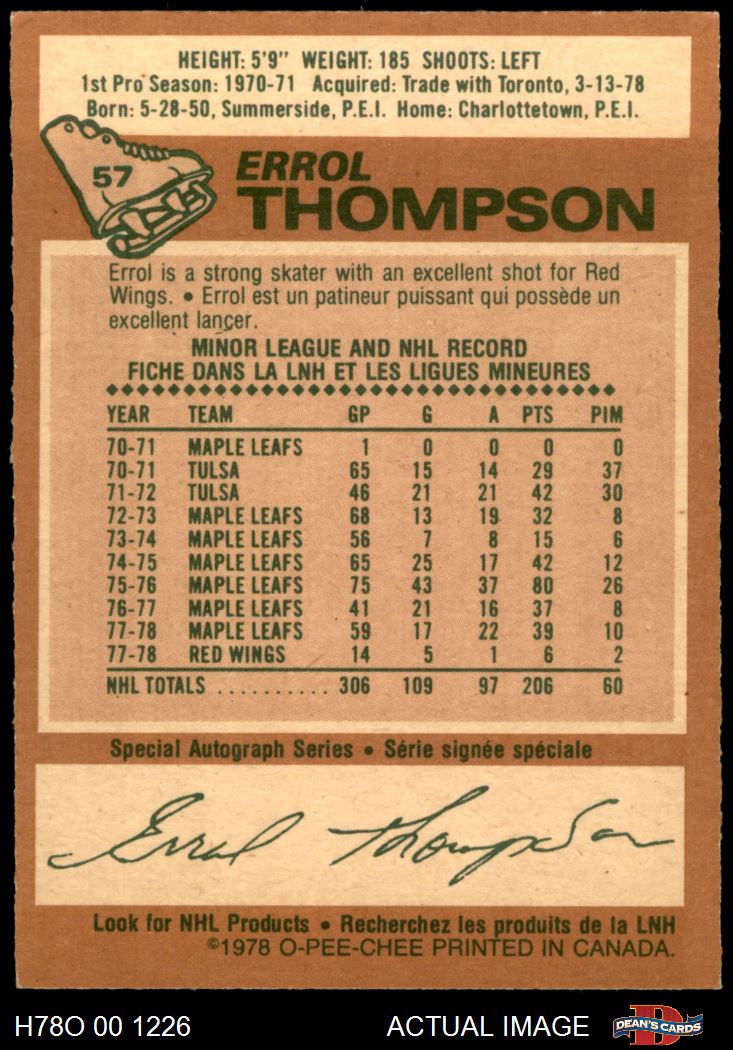 HEIGHT: 5'9" WEIGHT: 185 SHOOTS: LEFT
1st Pro Season: 1970-71 Acquired: Trade with Toronto, 3-13-78
Born: 5-28-50, Summerside, P.E.I. Home: Charlottetown, P.E.I.
57
ERROL
THOMPSON
Errol is a strong skater with an excellent shot for Red
Wings. • Errol est un patineur puissant qui possède un
excellent lançer.
MINOR LEAGUE AND NHL RECORD
FICHE DANS LA LNH ET LES LIGUES MINEURES
YEAR TEAM GP G A PTS PIM
70-71 MAPLE LEAFS 1 0 0 0 0
70-71 TULSA 65 15 14 29 37
71-72 TULSA 46 21 21 42 30
72-73 MAPLE LEAFS 68 13 19 32 8
73-74 MAPLE LEAFS 56 7 8 15 6
74-75 MAPLE LEAFS 65 25 17 42 12
75-76 MAPLE LEAFS 75 43 37 80 26
76-77 MAPLE LEAFS 41 21 16 37 8
77-78 MAPLE LEAFS 59 17 22 39 10
77-78 RED WINGS 14 5 1 6 2
NHL TOTALS .......... 306 109 97 206 60
Special Autograph Series • Série signée spéciale
Errol Thompson
Look for NHL Products • Recherchez les produits de la LNH
©1978 O-PEE-CHEE PRINTED IN CANADA.
H78O 00 1226 ACTUAL IMAGE D DEAN'S CARDS